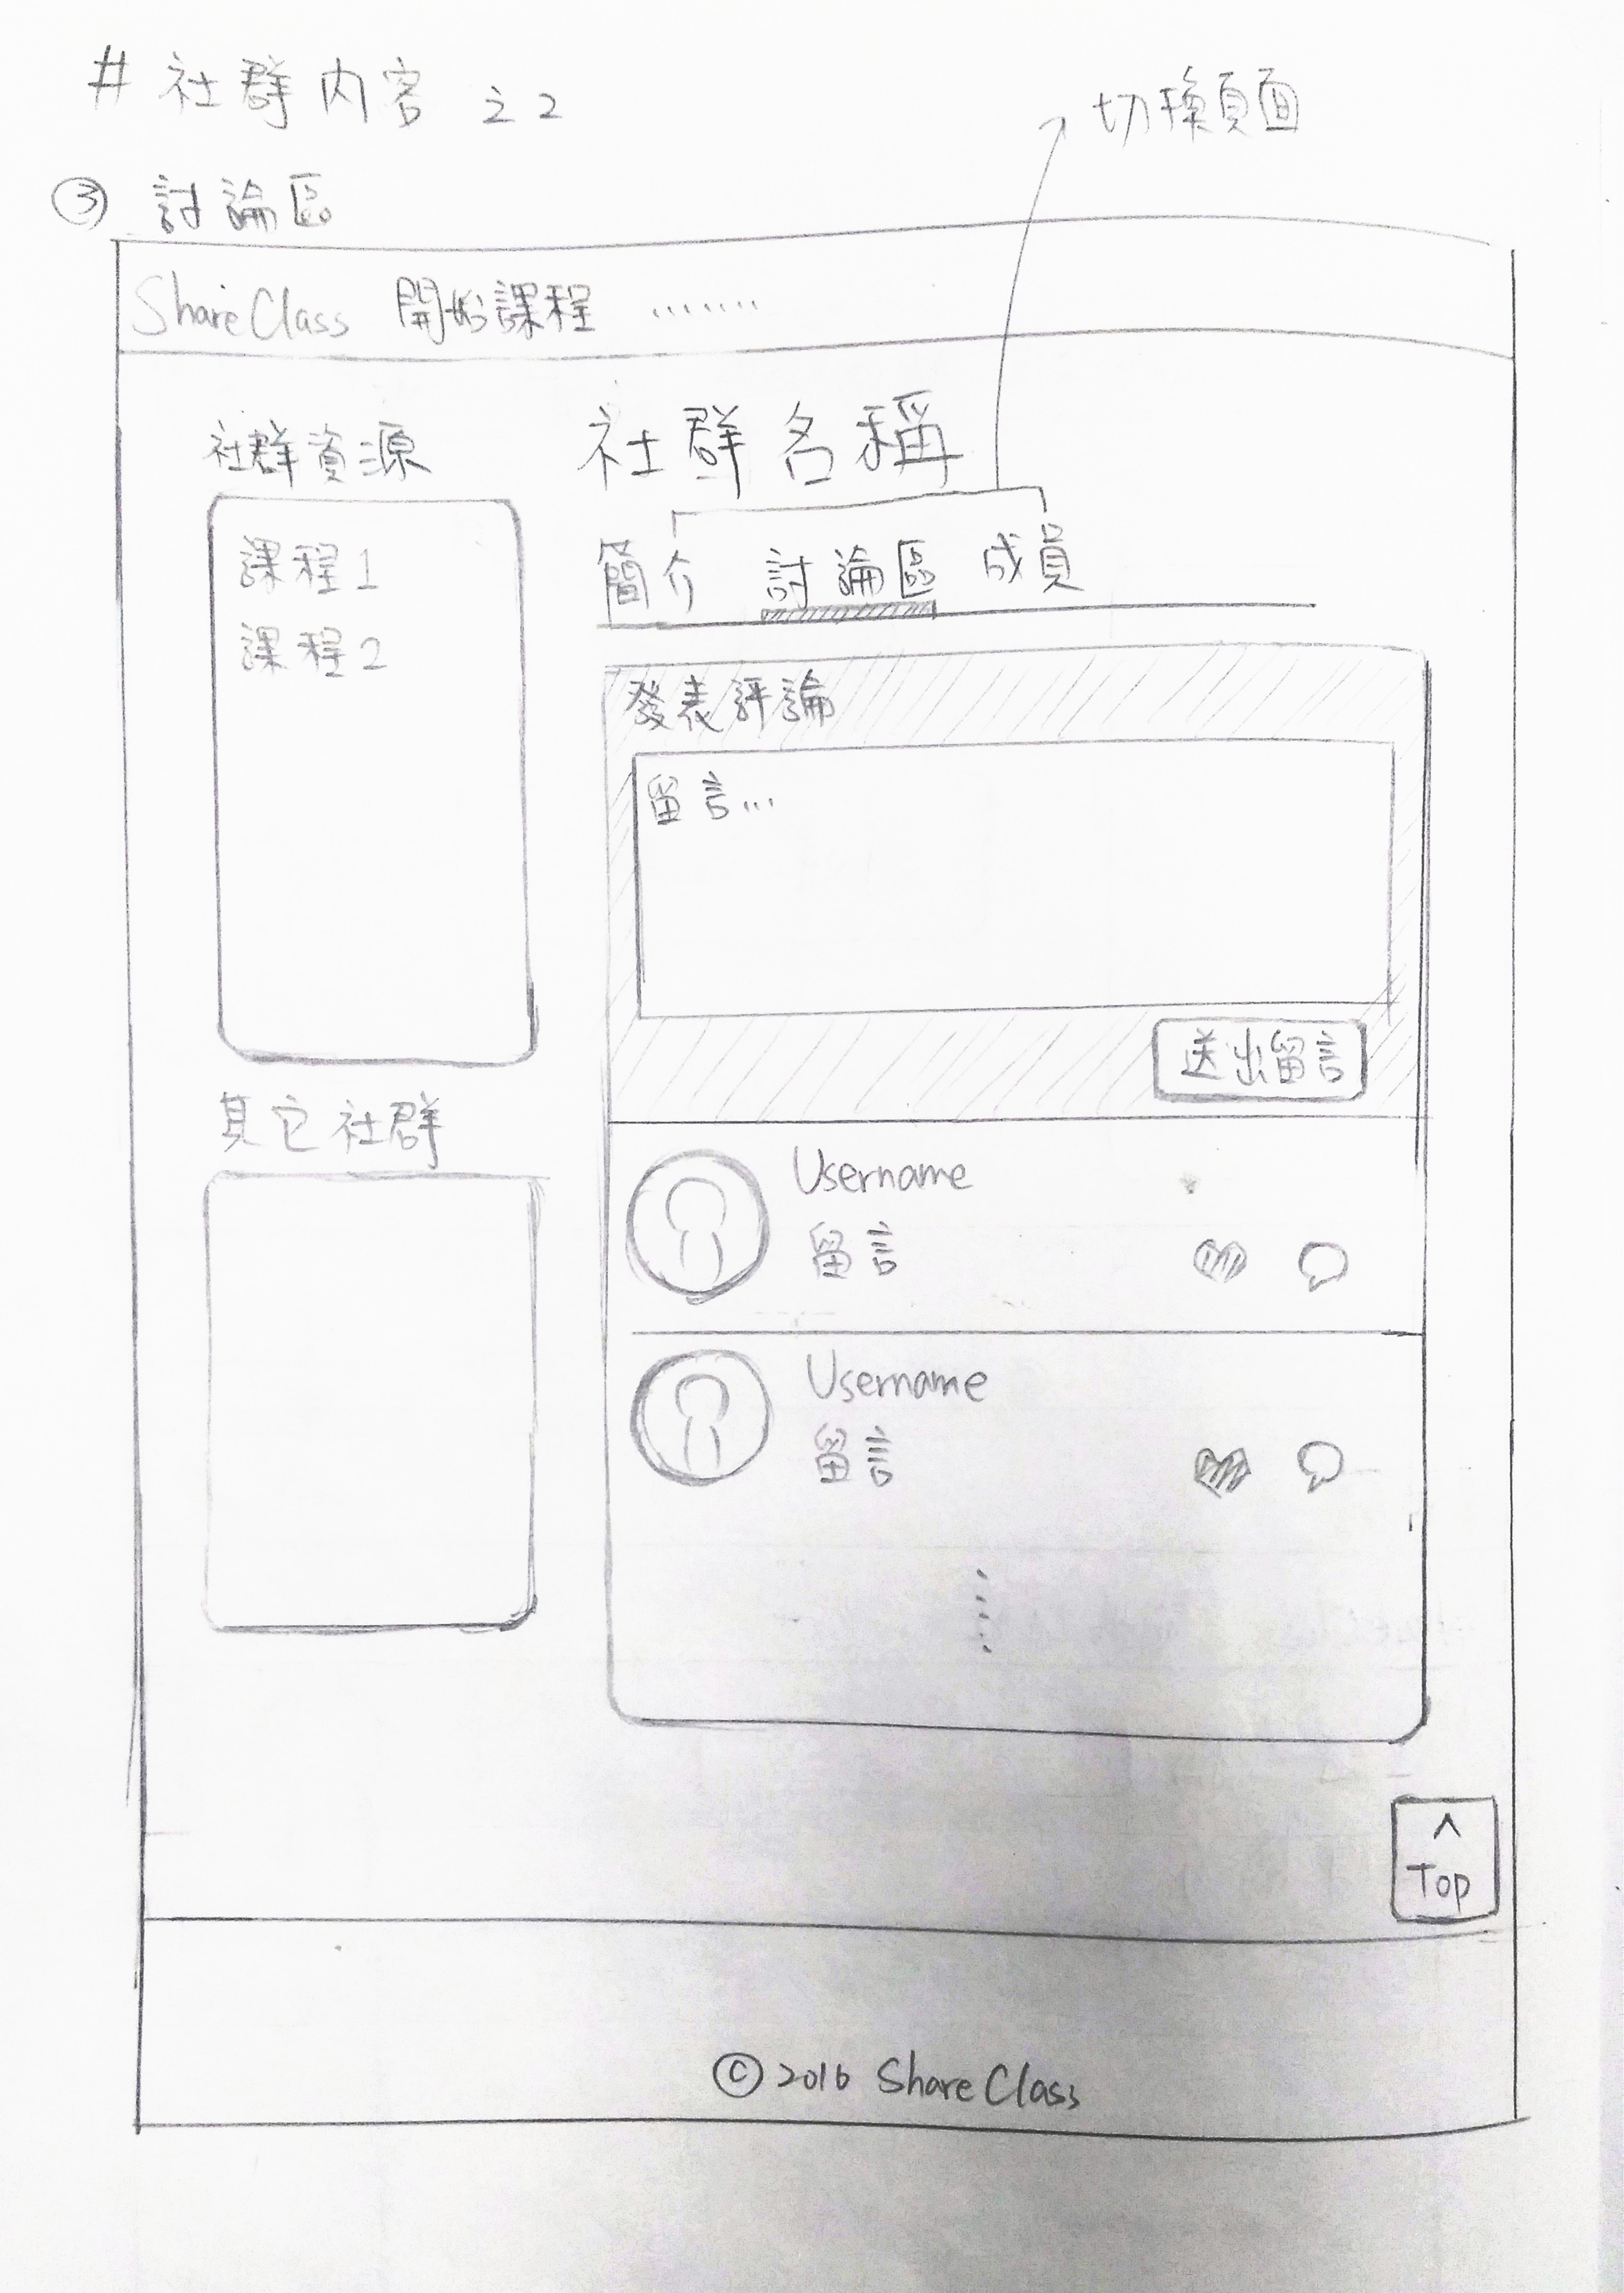 # 社群內容 之2
切換頁面
③ 討論區
ShareClass 開始課程 ........
社群資源
課程1
課程2
其它社群
社群名稱
簡介 討論區 成員
發表評論
留言...
送出留言
Username
留言
Username
留言
^
Top
© 2016 ShareClass